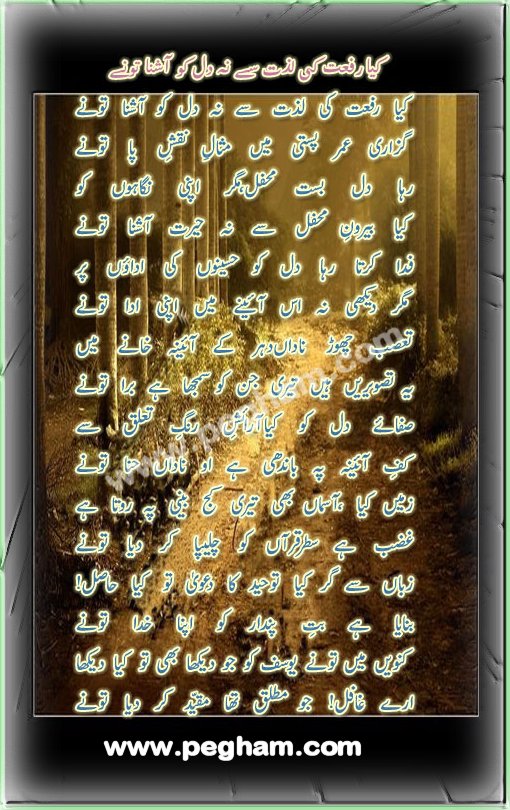 کیا رفعت کی لذت سے نہ دل کو آشنا تونے
کیا رفعت کی لذت سے نہ دل کو آشنا تونے
گزاری عمر پستی میں مثالِ نقشِ پا تونے
رہا دل بستۂ محفل، مگر اپنی نگاہوں کو
کیا بیرونِ محفل سے نہ حیرت آشنا تونے
فدا کرتا رہا دل کو حسینوں کی اداؤں پر
مگر دیکھی نہ اس آئینے میں اپنی ادا تونے
تعصب چھوڑ ناداں دہر کے آئینہ خانے میں
یہ تصویریں ہیں تیری جن کو سمجھا ہے برا تونے
صفائے دل کو کیا آرائشِ رنگِ تعلق سے
کفِ آئینہ پہ باندھی ہے او ناداں حنا تونے
زمیں کیا ،آسماں بھی تیری کج بینی پہ روتا ہے
غضب ہے سطرِ قرآں کو چلیپا کر دیا تونے
زباں سے گر کیا توحید کا دعویٰ تو کیا حاصل!
بنایا ہے بتِ پندار کو اپنا خدا تونے
کنویں میں تونے یوسف کو جو دیکھا بھی تو کیا دیکھا
ارے غافل! جو مطلق تھا مقیّد کر دیا تونے
www.pegham.com
www.pegham.com